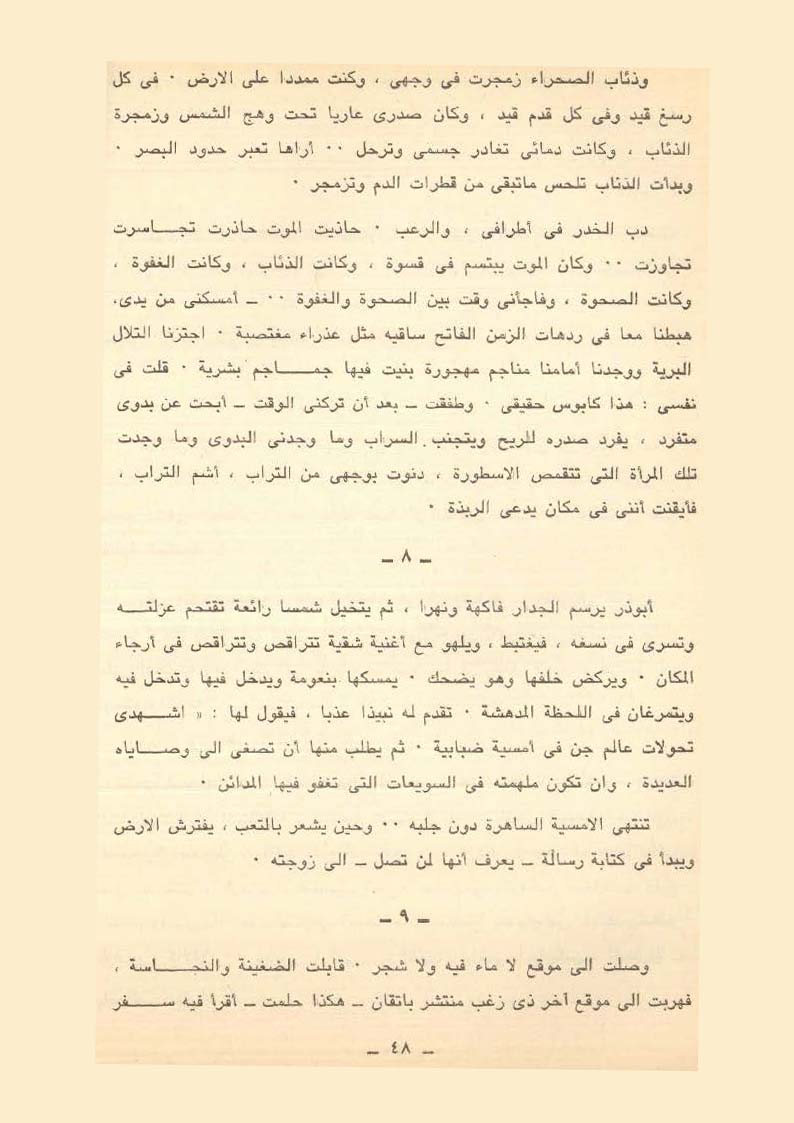 وذئاب الصحراء زمجرت فى وجهى ، وكنت ممددا على الارض ٠ فى كل
رسغ قيد وفى كل قدم قيد ، وكان صدرى عاريا تحت وهج الشمس وزمجرة
الذئاب ، وكانت دمائى تغادر جسمى وترحل ٠٠ أراها تعبر حدود البصر ٠
وبدأت الذئاب تلحس ماتبقى من قطرات الدم وتزمجر ٠
دب الخدر فى أطرافى ، والرعب ٠ حاذيت الموت حاذرت تجـــاسرت
تجاوزت ٠٠ وكان الموت يبتسم فى قسوة ، وكانت الذئاب ، وكانت الغفوة ،
وكانت الصحوة ، وفاجأنى وقت بين الصحوة والغفوة ٠٠ ـ أمسكنى من يدى،
هبطنا معا فى ردهات الزمن الفاتح ساقيه مثل عذراء مغتصبة ٠ اجتزنا التلال
البرية ووجدنا أمامنا مناجم مهجورة بنيت فيها جمـــاجم بشرية ٠ قلت فى
نفسى : هذا كابوس حقيقى ٠ وطفقت ـ بعد أن تركنى الوقت ـ أبحث عن بدوى
متفرد ، يفرد صدره للريح ويتجنب السراب وما وجدنى البدوى وما وجدت
تلك المرأة التى تتقمص الاسطورة ، دنوت بوجهى من التراب ، أشم التراب ،
فأيقنت أننى فى مكان يدعى الربذة ٠
ـ ٨ ـ
أبوذر يرسم الجدار فاكهة ونهرا ، ثم يتخيل شمسا رائعة تقتحم عزلتـــه
وتسرى فى نسغه ، فيغتبط ، ويلهو مع أغنية شقية تتراقص وتتراقص فى أرجاء
المكان ٠ ويركض خلفها وهو يضحك ٠ يمسكها بنعومة ويدخل فيها وتدخل فيه
ويتمرغان فى اللحظة المدهشة ٠ تقدم له نبيذا عذبا ، فيقول لها : « اشـــهدى
تحولات عالم جن فى أمسية ضبابية ٠ ثم يطلب منها أن تصغى الى وصـــاياه
العديدة ، وان تكون ملهمته فى السويعات التى تغفو فيها المدائن ٠
تنتهى الامسية الساهرة دون جلبه ٠٠ وحين يشعر بالتعب ، يفترش الارض
ويبدأ فى كتابة رسالة ـ يعرف أنها لن تصل ـ الى زوجته ٠
ـ ٩ ـ
وصلت الى موقع لا ماء فيه ولا شجر ٠ قابلت الضغينة والنجـــاسة ،
فهربت الى موقع آخر ذى زغب منتشر باتقان ـ هكذا حلمت ـ أقرأ فيه ســـفر
ـ ٤٨ ـ